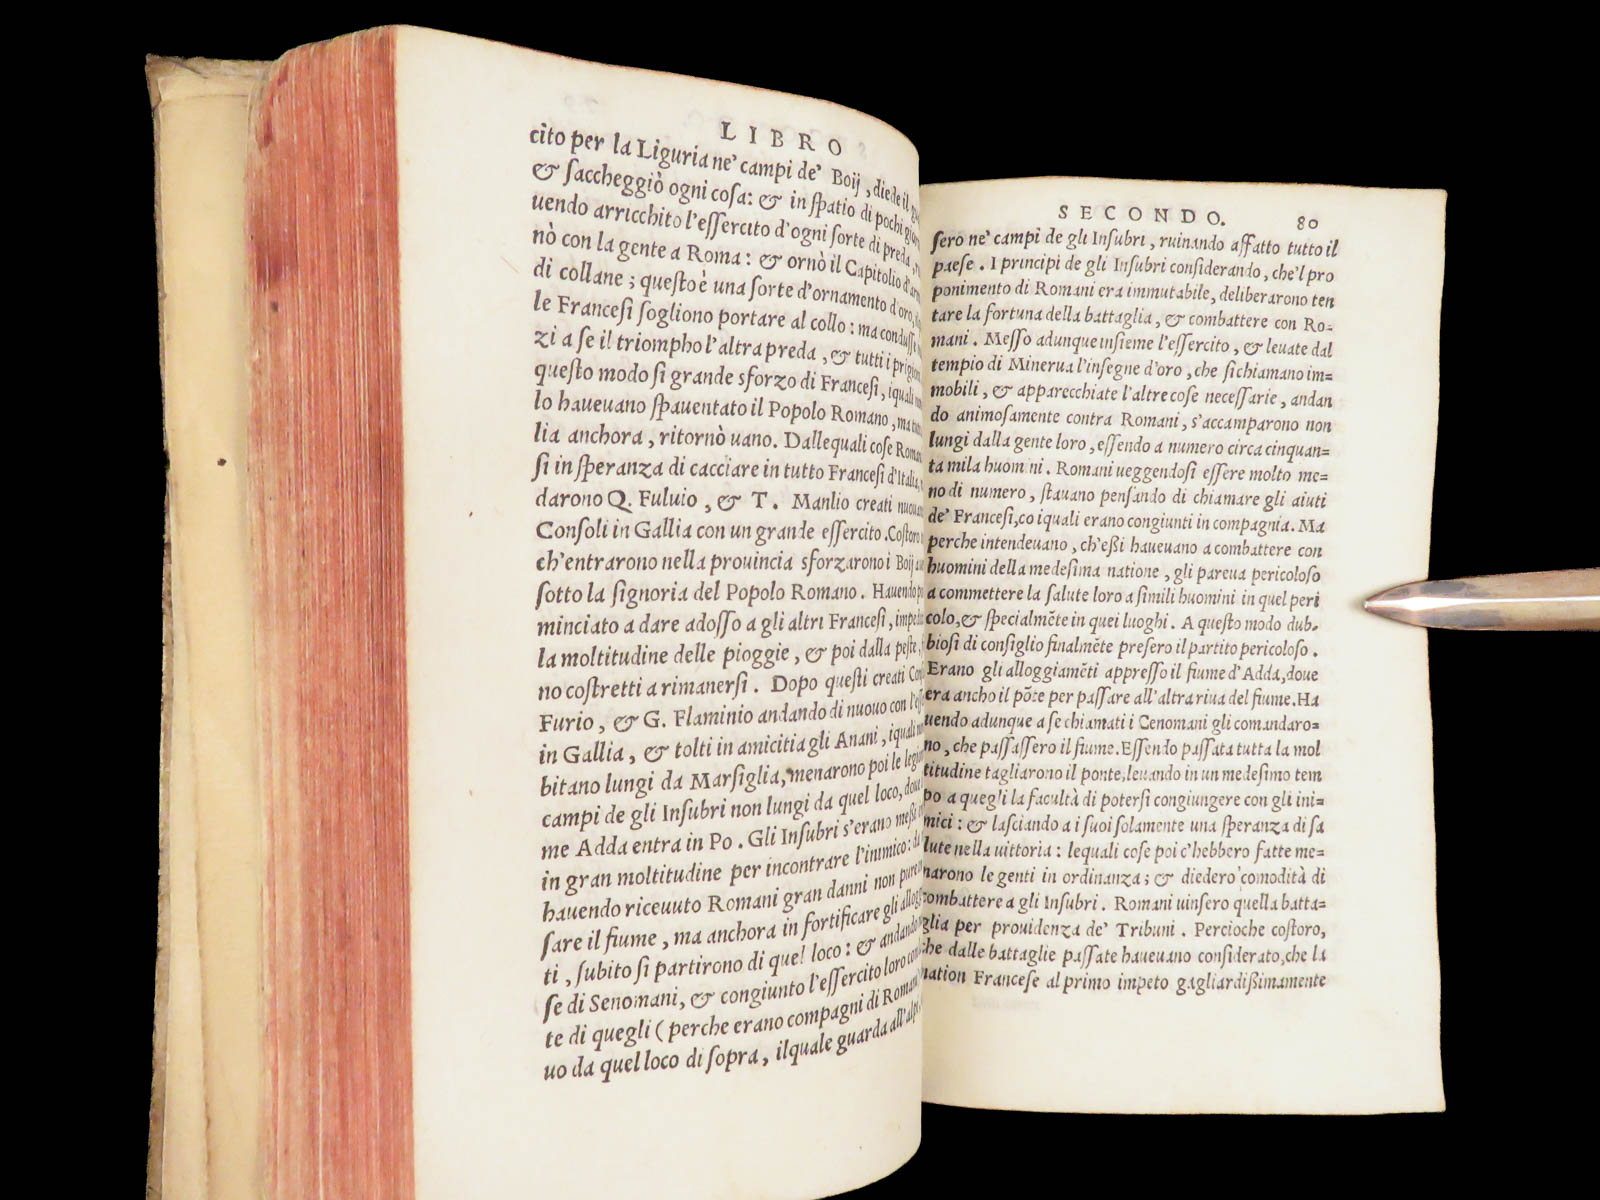 LIBRO
cito per la Liguria ne' campi de' Boij, diede il
& ſaccheggiò ogni coſa: & in ſpatio di pochi
uendo arricchito l'eſſercito d'ogni ſorte di preda,
nò con la gente a Roma: & ornò il Capitolio
di collane; queſto è una ſorte d'ornamento d'oro,
le Franceſi ſogliono portare al collo: ma conduſſe
zi a ſe il triompho l'altra preda, & tutti i
queſto modo ſi grande sforzo di Franceſi, iquali
lo haueuano ſpauentato il Popolo Romano, ma
lia anchora, ritornò uano. Dallequali coſe
ſi in ſperanza di cacciare in tutto Franceſi d'Italia,
darono Q. Fuluio, & T. Manlio creati
Conſoli in Gallia con un grande eſſercito. Coſtoro
ch'entrarono nella prouincia sforzarono i Boij
ſotto la ſignoria del Popolo Romano. Hauendo
minciato a dare adoſſo a gli altri Franceſi,
la moltitudine delle pioggie, & poi dalla peſte,
no coſtretti a rimanerſi. Dopo queſti creati
Furio, & G. Flaminio andando di nuouo con
in Gallia, & tolti in amicitia gli Anani, iquali
bitano lungi da Marſiglia, menarono poi le
campi de gli Inſubri non lungi da quel loco,
me Adda entra in Po. Gli Inſubri s'erano meßi
in gran moltitudine per incontrare l'inimico:
hauendo riceuuto Romani gran danni non
ſare il fiume, ma anchora in fortificare gli
ti, ſubito ſi partirono di quel loco: & andando
ſe di Senomani, & congiunto l'eſſercito loro
te di quegli (perche erano compagni di
uo da quel loco di ſopra, ilquale guarda all'alpi
SECONDO. 80
ſero ne' campi de gli Inſubri, ruinando affatto tutto il
paeſe. I principi de gli Inſubri conſiderando, che'l pro
ponimento di Romani era immutabile, deliberarono ten
tare la fortuna della battaglia, & combattere con Ro=
mani. Meſſo adunque inſieme l'eſſercito, & leuate dal
tempio di Minerua l'inſegne d'oro, che ſi chiamano im=
mobili, & apparecchiate l'altre coſe neceſſarie, andan
do animoſamente contra Romani, s'accamparono non
lungi dalla gente loro, eſſendo a numero circa cinquan=
ta mila huomini. Romani ueggendoſi eſſere molto me=
no di numero, ſtauano penſando di chiamare gli aiuti
de' Franceſi, co iquali erano congiunti in compagnia. Ma
perche intendeuano, ch'eßi haueuano a combattere con
huomini della medeſima natione, gli pareua pericoloſo
a commettere la ſalute loro a ſimili huomini in quel peri
colo, & ſpecialmẽte in quei luoghi. A queſto modo dub=
bioſi di conſiglio finalmẽte preſero il partito pericoloſo.
Erano gli alloggiamẽti appreſſo il fiume d'Adda, doue
era ancho il põte per paſſare all'altra riua del fiume. Ha
uendo adunque a ſe chiamati i Cenomani gli comandaro=
no, che paſſaſſero il fiume. Eſſendo paſſata tutta la mol
titudine tagliarono il ponte, leuando in un medeſimo tem
po a quegli la facultà di poterſi congiungere con gli ini=
mici: & laſciando a i ſuoi ſolamente una ſperanza di ſa
lute nella uittoria: lequali coſe poi c'hebbero fatte me=
narono le genti in ordinanza; & diedero comodità di
combattere a gli Inſubri. Romani uinſero quella batta=
glia per prouidenza de' Tribuni. Percioche coſtoro,
che dalle battaglie paſſate haueuano conſiderato, che la
nation Franceſe al primo impeto gagliardißimamente